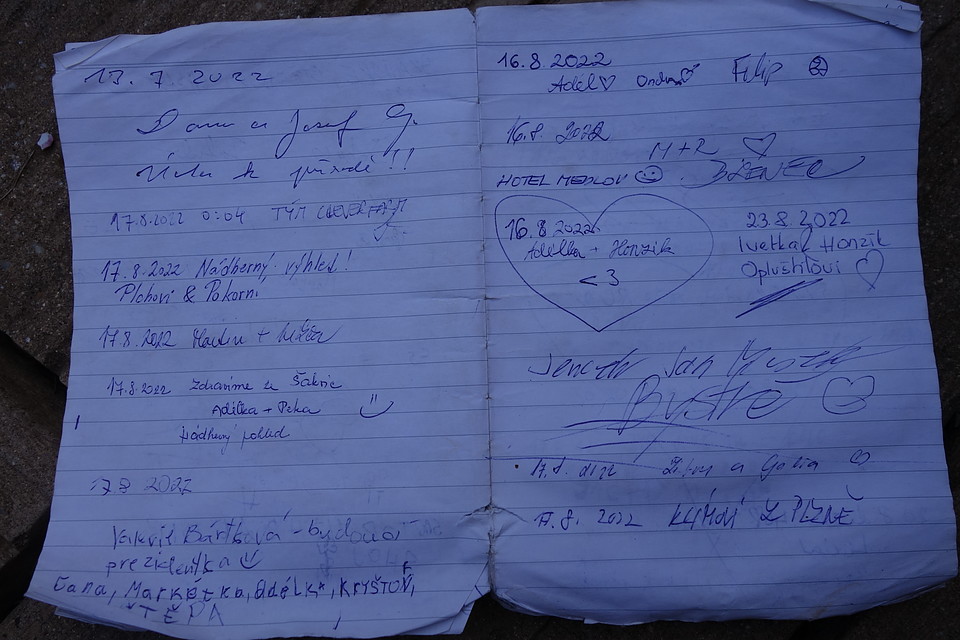 17.7.2022
Dana a Josef G.
Úcta k přírodě!!
17.8.2022 0:04 TÝM CLEVERFARM
17.8.2022 Nádherný výhled!
Plchovi & Pokorn.
17.8.2022 Martin +
17.8.2022 Zdravíme ze
Adélka + Péťa
nádherný pohled
17.8 2022
Bártková - budoucí
prezidentka
Dana, Markétka, Adélka, KRYŠTOF,
ŠTĚPA
16.8 2022
Adél♡ Ondra♡ Filip
16.8. 2022
M+R ♡
HOTEL MEDLOV
16.8 2022
Adélka + Honzík
<3
23.8.2022
Ivetka & Honzík
Opluštilovi ♡
Jan
Bystré
17.8. 2022
17.8. 2022 KLÍMOVI Z PLZNĚ